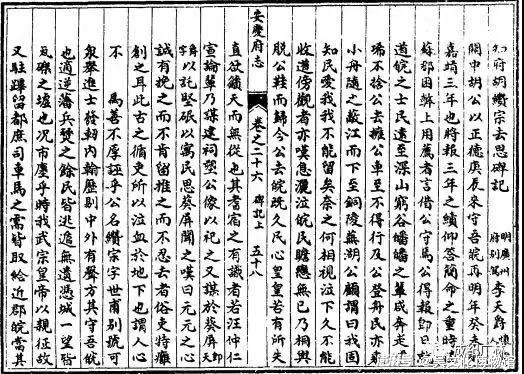 知府胡纘宗去思碑記 明廣州府別駕李天爵
關中胡公以正德庚辰來守吾皖再明年癸未
嘉靖三年也時報三年之績仰答簡命之重時
蘇郡因弊上用薦者言借公守焉公得報即日
道皖之士民遠至深山窮谷皤皤之叟咸奔走
唏不捨公去擁公車至不得行及公登舟民亦乘
小舟隨之蔽江而下至銅陵蕪湖公顧謂曰我固
知民愛我我不能留矣奈之何相視泣下久不能
收道傍觀者亦嘆息灑泣皖民瞻戀無已乃相與
脫公鞋而歸今公去皖既久民心皇皇若有所失
安慶府志 卷之二十六 碑記上 五十八
直欲籲天而無從也其耆宿之有識者若汪仲仁
宣綸輩乃謀建祠塑公像以祀之又謀於葵屏
以託堅珉以寓民思葵屏聞之嘆曰元元之心
誠有挽之而不肯留推之而不忍去者俗吏特癰
創之耳此古之循吏所以泣血於地下也謂人心
不 為善不厚誣乎公名纘宗字世甫別號可
泉舉進士發軔内翰歷剔中外有聲方其守吾皖
也適逆藩兵燹之餘民皆逃竄無遺憑城一望皆
瓦礫之墟也況市廛乎時我武宗皇帝以親征故
又駐蹕留都庶司車馬之需皆取給近郡皖當其